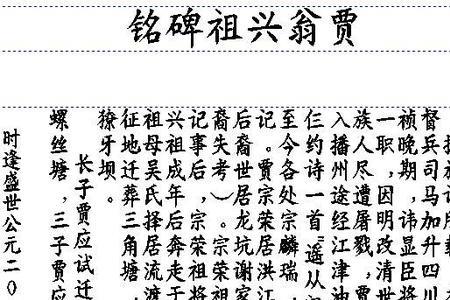 贾翁兴祖碑铭
督兵司马加升四川
祯晚期，讳显臣将
一职，因明改清世
族人尽遭屠戮，贾
入播州途经江津油
仨约诗一首“遥从
至今各处宗麟瑞
记。贾宗荣居洪江
后裔世居龙坑谢家
裔失考）。宗荣
记事后，宗荣祖将
兴祖成年后奔走于
祖母吴氏择居流渡
征地迁葬三角塘，
獠牙坝。
长子贾应试迁
螺丝塘，三子贾应
时逢盛世公元二0